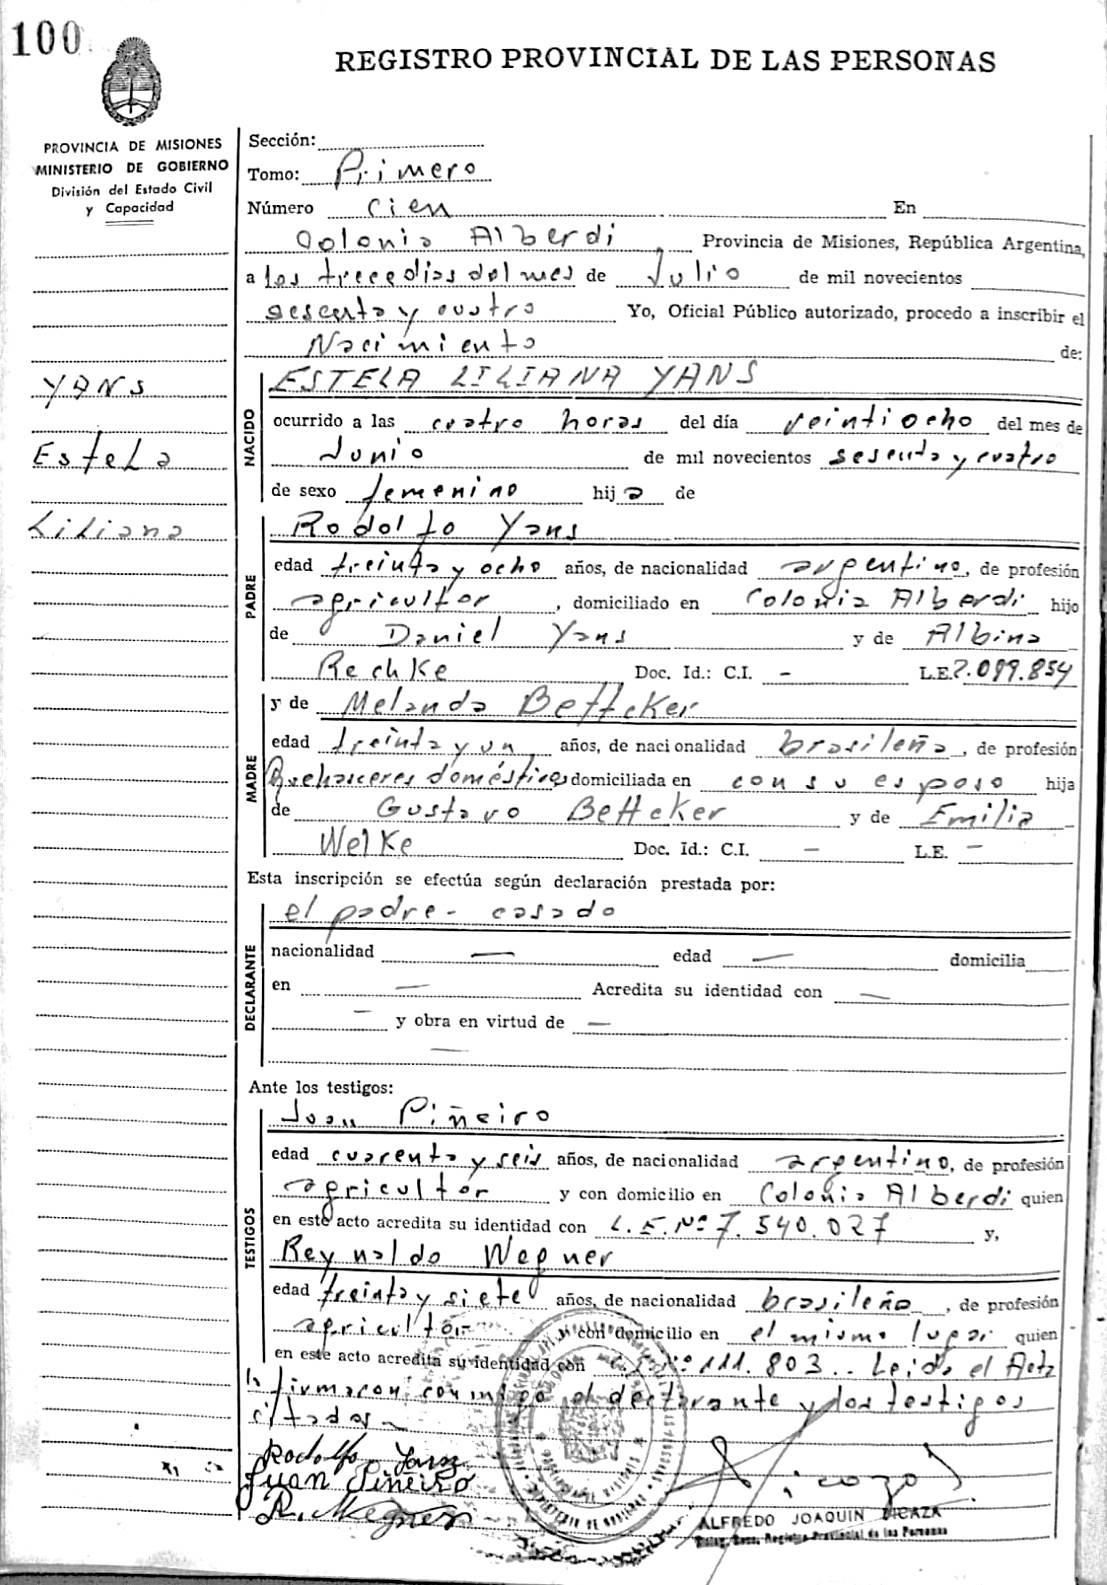 100
REGISTRO PROVINCIAL DE LAS PERSONAS
PROVINCIA DE MISIONES
MINISTERIO DE GOBIERNO
División del Estado Civil
y Capacidad
YANS
Estela
Liliana
Sección:
Tomo: Primero
Número cien En
Colonia Alberdi, Provincia de Misiones, República Argentina,
a los trece dias del mes de Julio de mil novecientos
sesenta y cuatro Yo, Oficial Público autorizado, procedo a inscribir el
Nacimiento de:
NACIDO
ESTELA LILIANA YANS
ocurrido a las cuatro horas del día veintiocho del mes de
Junio de mil novecientos sesenta y cuatro
de sexo femenino hija de
PADRE
Rodolfo Yans
edad treinta y ocho años, de nacionalidad argentino, de profesión
agricultor, domiciliado en Colonia Alberdi hijo
de Daniel Yans y de Albina
Rechke Doc. Id.: C.I. - L.E. 7.099.854
MADRE
y de Melanda Bettcker
edad treinta y un años, de nacionalidad brasileña, de profesión
Quehaceres domésticos domiciliada en con su esposo hija
de Gustavo Bettcker y de Emilia
Welke Doc. Id.: C.I. — L.E. —
Esta inscripción se efectúa según declaración prestada por:
DECLARANTE
el padre - casado
nacionalidad — edad — domicilia
en — Acredita su identidad con —
— y obra en virtud de —
—
Ante los testigos:
TESTIGOS
Juan Piñeiro
edad cuarenta y seis años, de nacionalidad argentino, de profesión
agricultor y con domicilio en Colonia Alberdi quien
en este acto acredita su identidad con L.E. Nº 7.540.027 y,
Reynaldo Wegner
edad treinta y siete años, de nacionalidad brasileño, de profesión
agricultor con domicilio en el mismo lugar quien
en este acto acredita su identidad con C.I. Nº 111.803.. Leida el Acta
la firmaron conmigo el declarante y los testigos
citados -
Rodolfo Yans
Juan Piñeiro
R. Wegner
ALFREDO JOAQUIN DICAZA
Registro Provincial de las Personas